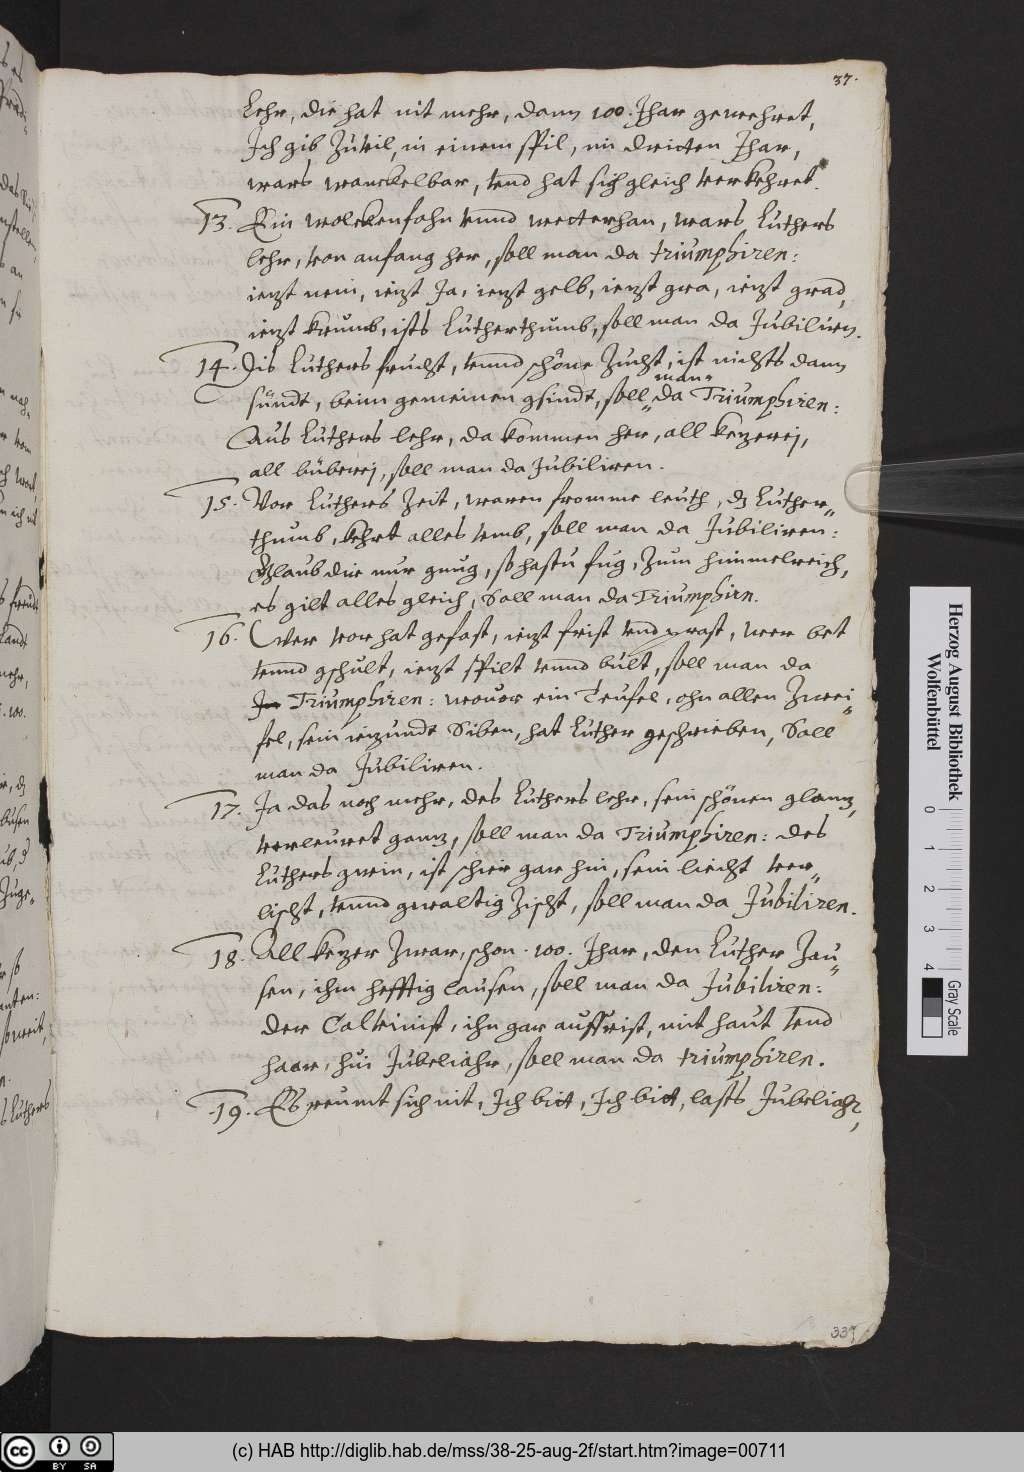 37.
Lehr, die hat nit mehr, dann 100. Jhar gewehret,
Ich gib Zuvil, in einem spil, im dritten Jhar,
wars wanckelbar, vnd hat sich gleich verkehret.
13. Ein wolckenfahn vnnd wetterhan, wars Luthers
lehr, von anfang her, soll man da triumphiren:
ietzt nein, ietzt Ja, ietzt gelb, ietzt gra, ietzt grad,
ietzt krumb, ists Lutherthumb, soll man da Jubiliren.
14. Dis Luthers frucht, vnnd schöne Zucht, ist nichts dann
sündt, beim gemeinen gsindt, soll man da Triumphiren:
Aus Luthers lehr, da kommen her, all ketzereÿ,
all bübereÿ, soll man da Jubiliren.
15. Vor Luthers Zeit, waren fromme leuth, dz Luther„
thumb, kehrt alles vmb, soll man da Jubiliren:
Glaub du nur gnug, so hastu fug, Zum himmelreich,
es gilt alles gleich, Soll man da Triumphirn.
16. Wer vor hat gefast, ietzt frist vnd prast, wer bet
vnnd gschult, ietzt spilt vnnd bult, soll man da
Ju Triumphiren: wouor ein Teufel, ohn allen Zwei„
fel, sein ietzundt Siben, hat Luther geschrieben, Soll
man da Jubiliren.
17. Ja das noch mehr, des Luthers lehr, sein schönen glantz,
verleuret gantz, soll man da Triumphiren: des
Luthers gwin, ist schier gar hin, sein liecht ver„
lischt, vnnd gwaltig Zischt, soll man da Jubiliren.
18. All ketzer Zwar, schon. 100. Jhar, den Luther Zau„
sen, ihm hefftig lausen, soll man da Jubiliren:
der Calvinist, ihn gar auffrist, mit haut vnd
haar, hui Jubeliahr, soll man da triumphiren.
19. Es reumt sich nit, Ich bitt, Ich bitt, lasts Jubeliahr,
Herzog August Bibliothek
Wolfenbüttel
0 1 2 3 4
Gray Scale
(c) HAB http://diglib.hab.de/mss/38-25-aug-2f/start.htm?image=00711
cc BY SA